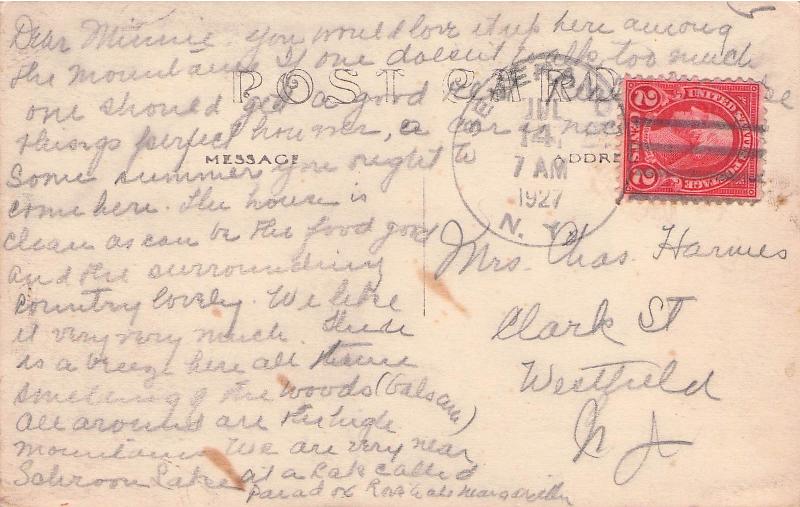 Dear Minnie. you would love it up here among
the mountains If one doesn't walk too much
POST CARD
one should get a good rest be
things perfect however, a car is
MESSAGE
Some summer you might to
come here. The house is
clean as can be the food good
and the surrounding
country lovely. We like
it very very much. There
is a breeze here all the time
smelling of the woods (balsam)
all around are the high
mountains We are very near
Schroon Lake at a lake called
Paradox
JUL
14
7 AM
1927
N. Y.
ADDRE
UNITED STATES POSTAGE
2 CENTS 2
Mrs. Chas. Harmes
Clark St
Westfield
N J